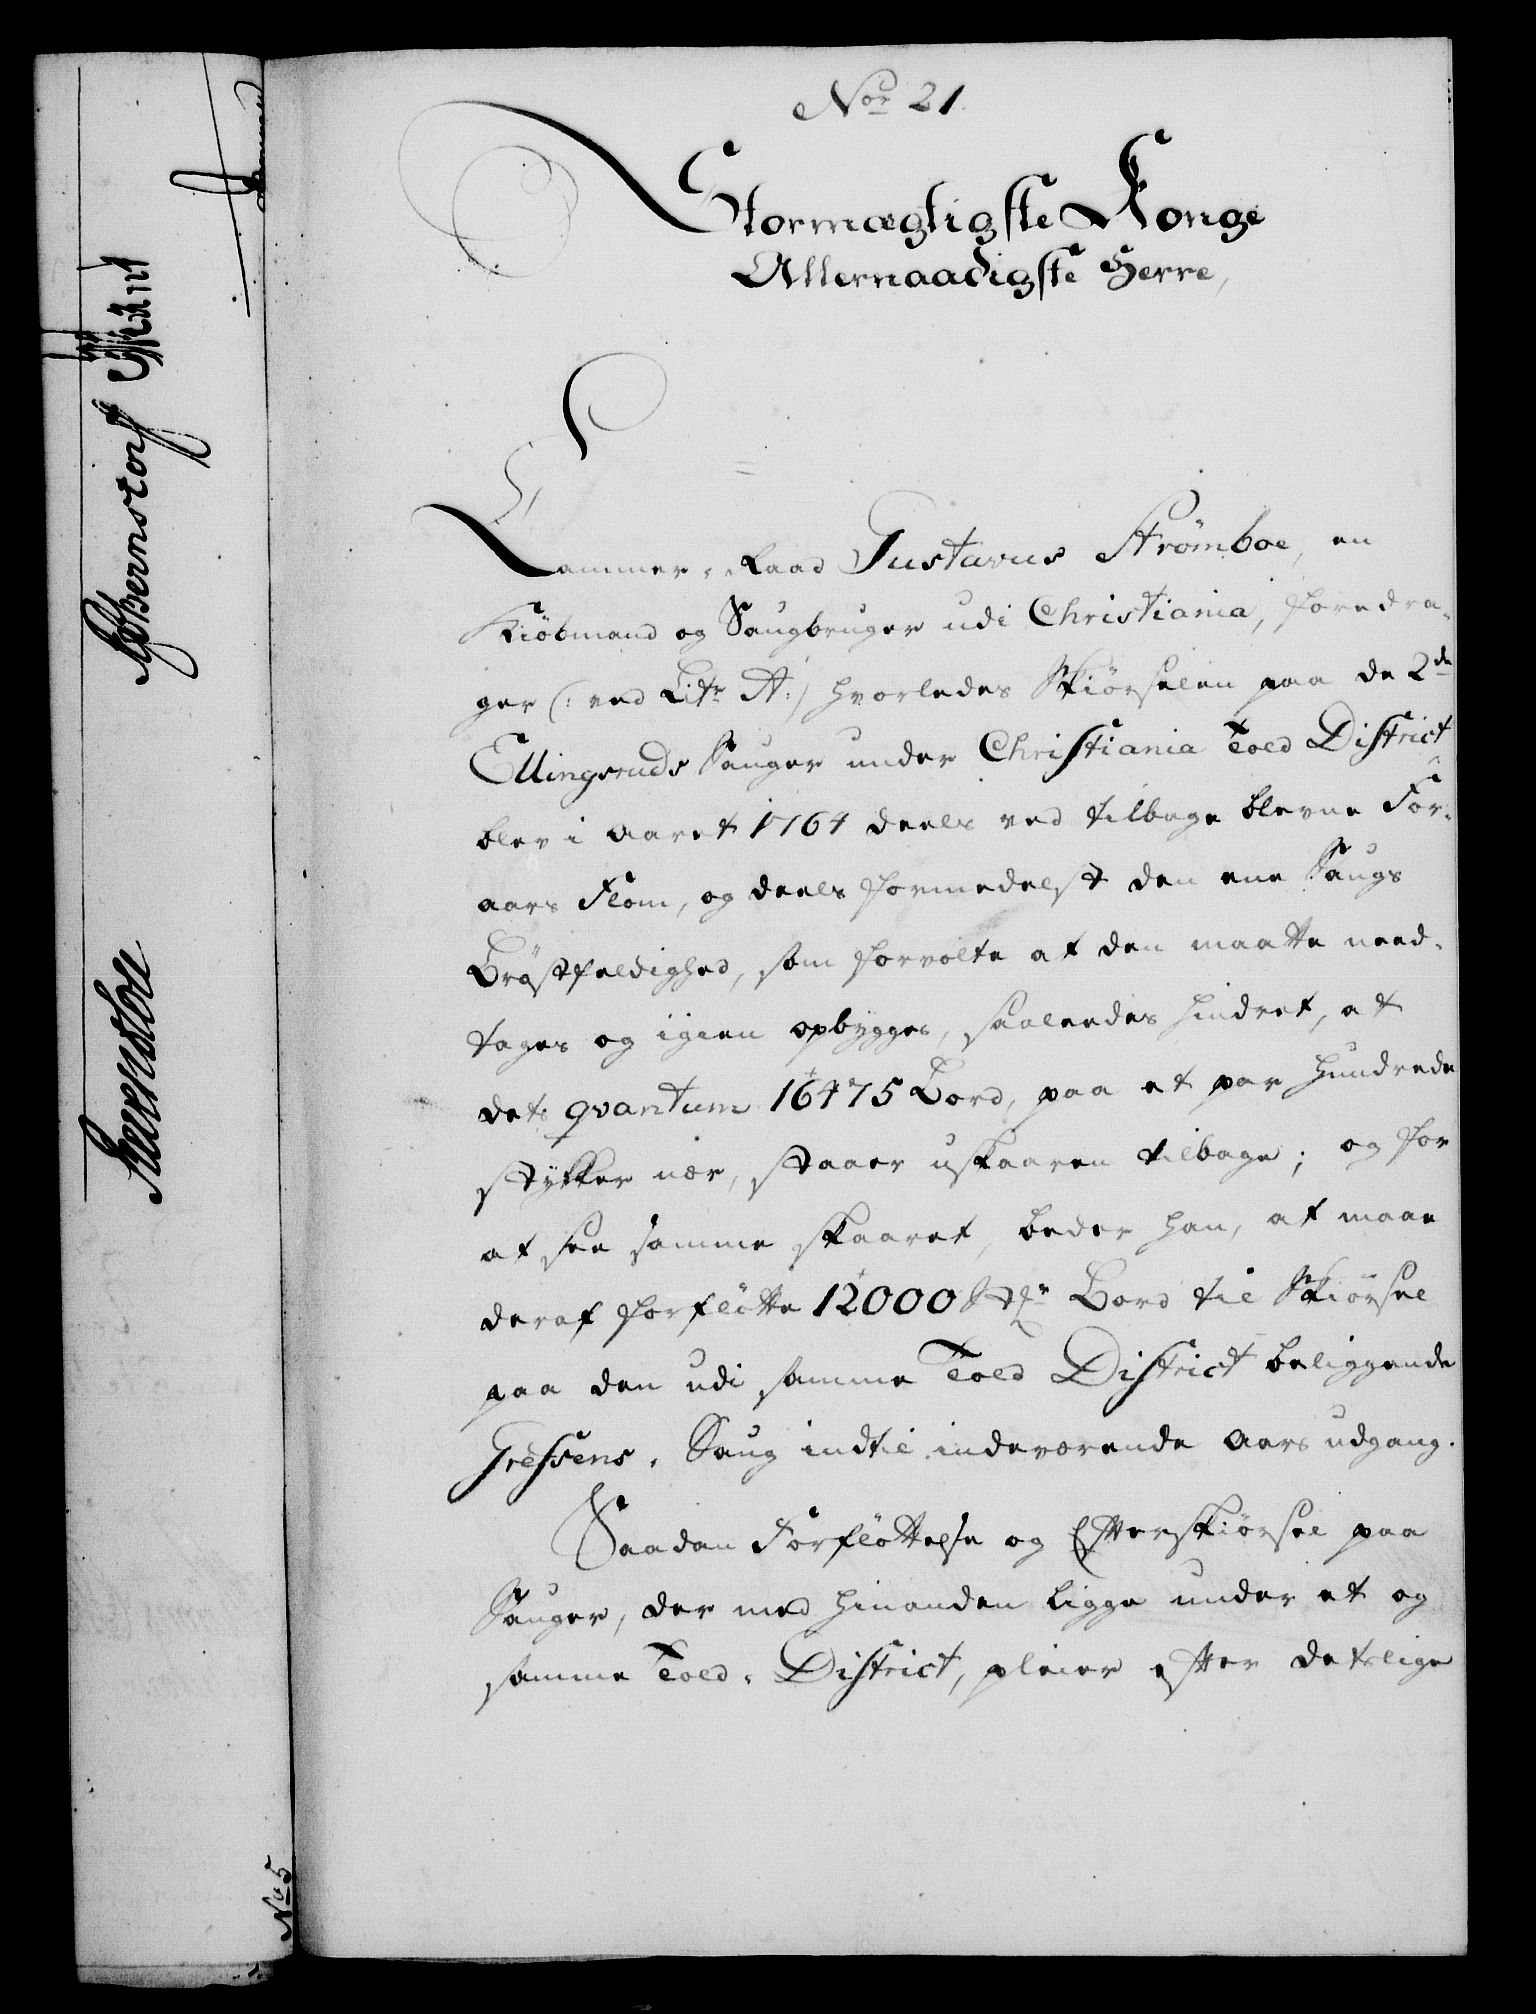 Nor 21.
Stormægtigste Konge
Allernaadigste Herre,
Cammer-Raad Gustavus Strømboe, en
Kiöbmand og Saugbruger udi Christiania, foredra-
ger (: ved Litr A:) hvorledes Skiørselen paa de 2de
Ellingsruds Sauger under Christiania Told District
blev i Aaret 1764 deels ved tilbage blevne For-
aars Flom, og deels formedelst den ene Saugs
Bröstfeldighed, som forvolte at den maatte need-
tages og igien opbygges, saaleedes hindret, at
dets qvantum 16475 Bord, paa et par hundrede
stykker nær, staaer uskaaren tilbage; og for
at see samme skaaret, beder han, at maae
deraf forfløtte 12000 Stkr Bord til Skiörsel
paa den udi samme Told District beliggende
Gressens-Saug indtil indeværende Aars udgang.
Saadan Forfløttelse og Efterskiörsel paa
Sauger, der med hinanden ligge under et og
samme Told-District, pleier efter detslige
Bernstorf
No 5